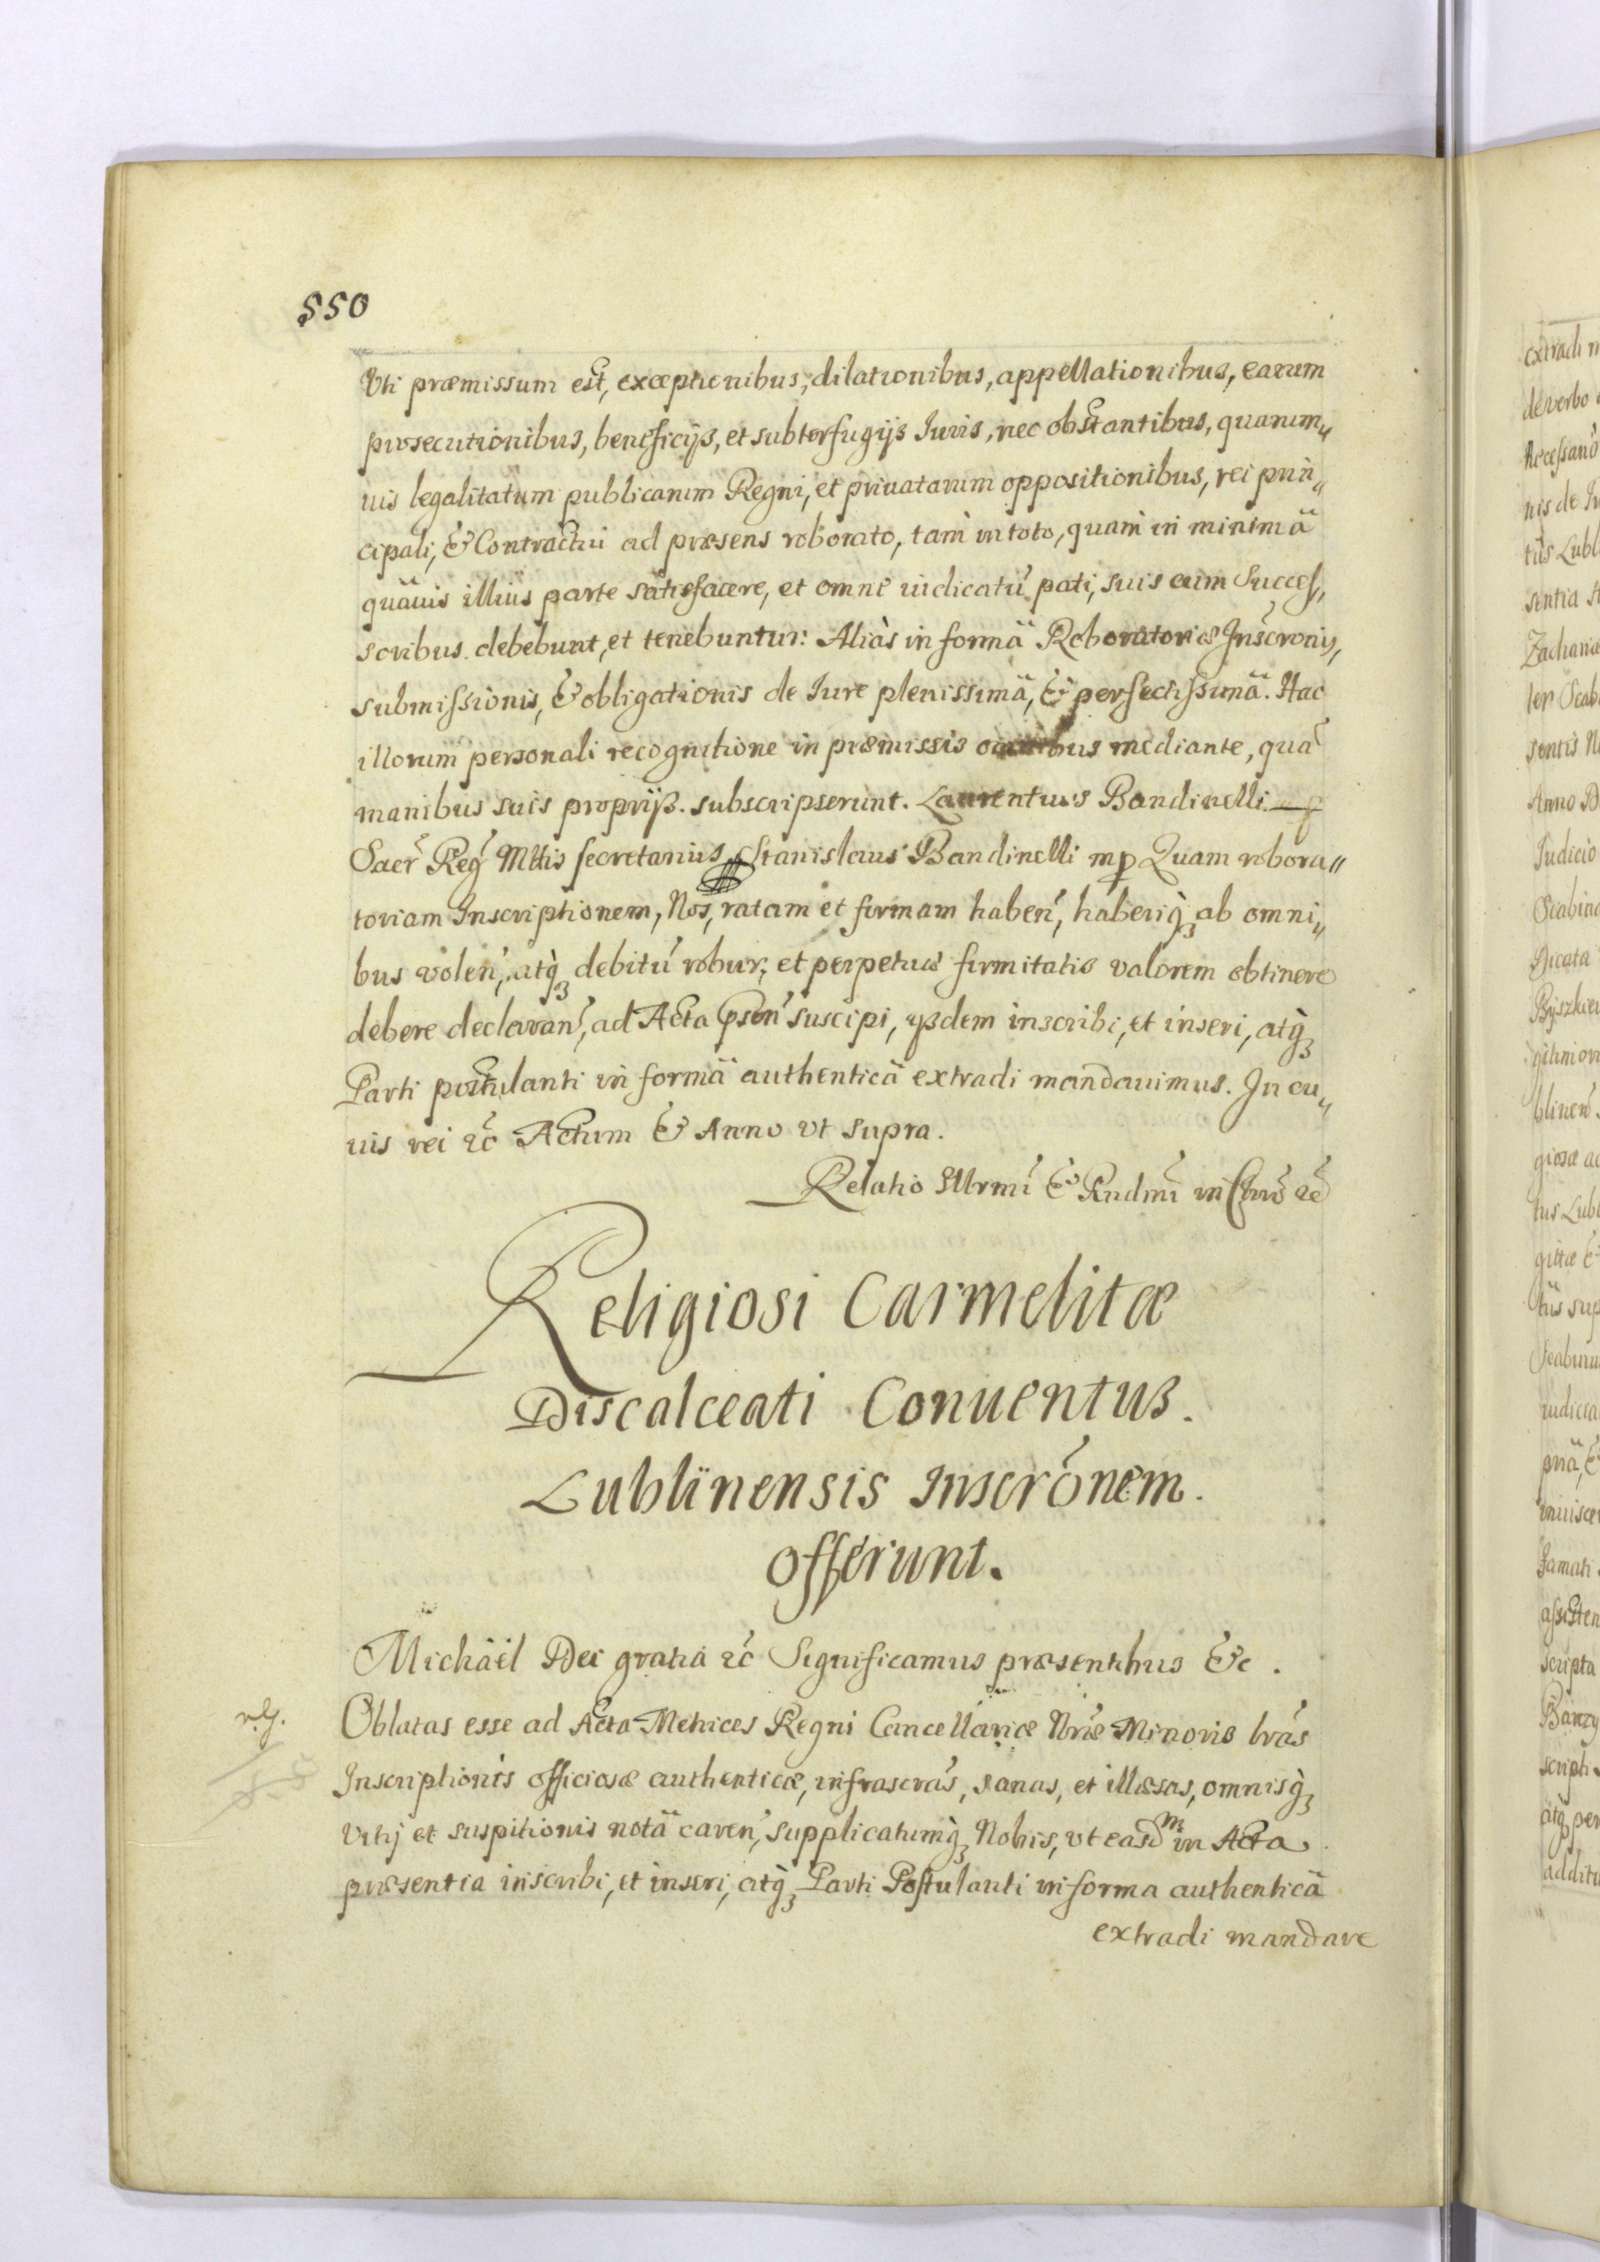 550
Vti præmissum est, exceptionibus, dilationibus, appellationibus, earum
prosecutionibus, beneficijs, et subterfugijs Iuris, nec obstantibus, quarum„
uis legalitatum publicarum Regni, et priuatarum oppositionibus, rei prin„
cipali, & Contractui ad præsens roborato, tam in toto, quàm in minimâ
quâuis illius parte satisfacere, et omne iudicatũ pati, suis cum Succes„
soribus debebunt, et tenebuntur: Aliàs in formâ Roboratoriæ Inscronis,
submissionis, & obligationis de Iure plenissimâ, & perfectissimâ. Hac
illorum personali recognitione in præmissis omnibus mediante, quã
manibus suis proprijs subscripserunt. Laurentius Bandinelli
Sacr Reg Mttis secretarius, Stanislaus Bandinelli mp Quam robora„
toriam Inscriptionem, Nos, ratam et firmam haben, haberiq; ab omni„
bus volen, atq; debitũ robur, et perpetuæ firmitatis valorem obtinere
debere declaran, ad Acta psen suscipi, ijsdem inscribi, et inseri, atq;
Parti postulanti in formâ authenticâ extradi mandauimus. In cu„
uis rei &c Actum & Anno vt supra.
Relatio Illrmi & Rndmi in Chro &c
Religiosi Carmelitæ
Discalceati Conuentus
Lublinensis Inscronem
offerunt.
Michaël Dei gratia &c Significamus præsentibus &c.
Oblatas esse ad Acta Metrices Regni Cancellariæ Nræ Minoris lras
Inscriptionis officiosæ authenticæ, infrascras, sanas, et illæsas, omnisq;
Vitij et suspitionis notâ caren, supplicatumq; Nobis, vt easdm in Acta
præsentia inscribi, et inseri, atq; Parti Postulanti in forma authenticâ
extradi mandare